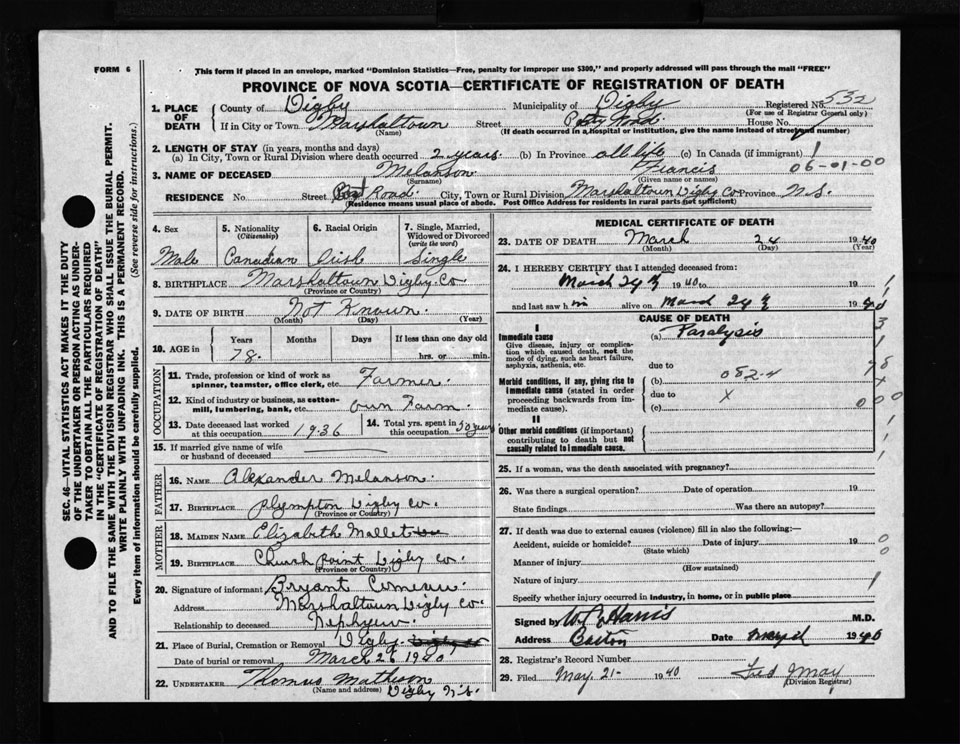 FORM 6
This form if placed in an envelope, marked "Dominion Statistics—Free, penalty for improper use $300," and properly addressed will pass through the mail "FREE"
PROVINCE OF NOVA SCOTIA—CERTIFICATE OF REGISTRATION OF DEATH
1. PLACE OF DEATH County of Digby Municipality of Digby Registered No. 532
(For use of Registrar General only)
If in City or Town Marshaltown Street Road House No.
(Name) (If death occurred in a hospital or institution, give the name instead of street and number)
2. LENGTH OF STAY (in years, months and days)
(a) In City, Town or Rural Division where death occurred 2 years. (b) In Province all life (c) In Canada (if immigrant)
3. NAME OF DECEASED Melanson Francis 06-01-00
(Surname) (Given name or names)
RESIDENCE No. Street Road City, Town or Rural Division Marshaltown Digby Co Province N.S.
(Residence means usual place of abode. Post Office Address for residents in rural parts not sufficient)
4. Sex 5. Nationality (Citizenship) 6. Racial Origin 7. Single, Married, Widowed or Divorced (write the word)
Male Canadian Irish Single
8. BIRTHPLACE Marshaltown Digby Co
(Province or Country)
9. DATE OF BIRTH Not Known.
(Month) (Day) (Year)
10. AGE in Years Months Days If less than one day old
78. hrs. or min.
OCCUPATION
11. Trade, profession or kind of work as spinner, teamster, office clerk, etc. Farmer.
12. Kind of industry or business, as cotton-mill, lumbering, bank, etc. Own Farm
13. Date deceased last worked at this occupation 1936 14. Total yrs. spent in this occupation 50 years
15. If married give name of wife or husband of deceased
FATHER
16. NAME Alexander Melanson.
17. BIRTHPLACE Plympton Digby Co.
(Province or Country)
MOTHER
18. MAIDEN NAME Elizabeth Mallet
19. BIRTHPLACE Church Point Digby Co.
(Province or Country)
20. Signature of informant Bryant Comeau.
Address Marshaltown Digby Co.
Relationship to deceased Nephyew.
21. Place of Burial, Cremation or Removal Digby.
Date of burial or removal March 26 1940
22. UNDERTAKER Thomus Matheson
(Name and address) Digby N.S.
MEDICAL CERTIFICATE OF DEATH
23. DATE OF DEATH March 24 1940
(Month) (Day) (Year)
24. I HEREBY CERTIFY that I attended deceased from:
March 24 1940 to 19
and last saw h im alive on March 24 1940
CAUSE OF DEATH
I
Immediate cause (a) Paralysis
Give disease, injury or complication which caused death, not the mode of dying, such as heart failure, asphyxia, asthenia, etc.
due to
Morbid conditions, if any, giving rise to immediate cause (stated in order proceeding backwards from immediate cause). (b) 082-4
due to X
(c)
II
Other morbid conditions (if important) contributing to death but not causally related to immediate cause.
25. If a woman, was the death associated with pregnancy?
26. Was there a surgical operation? Date of operation 19
State findings Was there an autopsy?
27. If death was due to external causes (violence) fill in also the following:—
Accident, suicide or homicide? Date of injury 19
(State which)
Manner of injury
(How sustained)
Nature of injury
Specify whether injury occurred in industry, in home, or in public place
Signed by Harris M.D.
Address Barton Date 1940
28. Registrar's Record Number
29. Filed May. 21- 1940 May
(Division Registrar)
SEC. 46—VITAL STATISTICS ACT MAKES IT THE DUTY
OF THE UNDERTAKER OR PERSON ACTING AS UNDER-
TAKER TO OBTAIN ALL THE PARTICULARS REQUIRED
IN THE "CERTIFICATE OF REGISTRATION OF DEATH"
AND TO FILE THE SAME WITH THE DIVISION REGISTRAR WHO SHALL ISSUE THE BURIAL PERMIT.
WRITE PLAINLY WITH UNFADING INK. THIS IS A PERMANENT RECORD.
Every item of information should be carefully supplied. (See reverse side for instructions.)